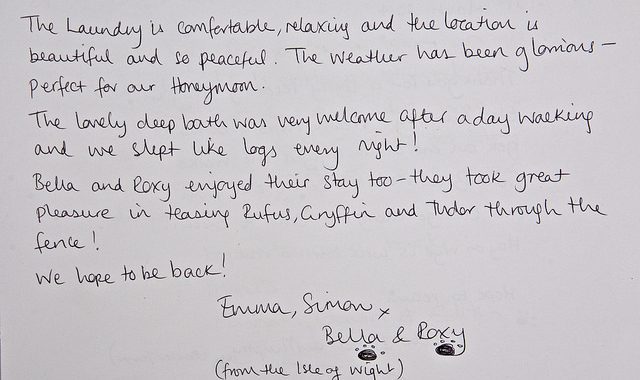 The Laundry is comfortable, relaxing and the location is
beautiful and so peaceful. The weather has been glorious –
perfect for our Honeymoon.
The lovely deep bath was very welcome after a day walking
and we slept like logs every night!
Bella and Roxy enjoyed their stay too – they took great
pleasure in teasing Rufus, Gryffin and Tudor through the
fence!
We hope to be back!
Emma, Simon x
Bella & Roxy
(from the Isle of Wight)